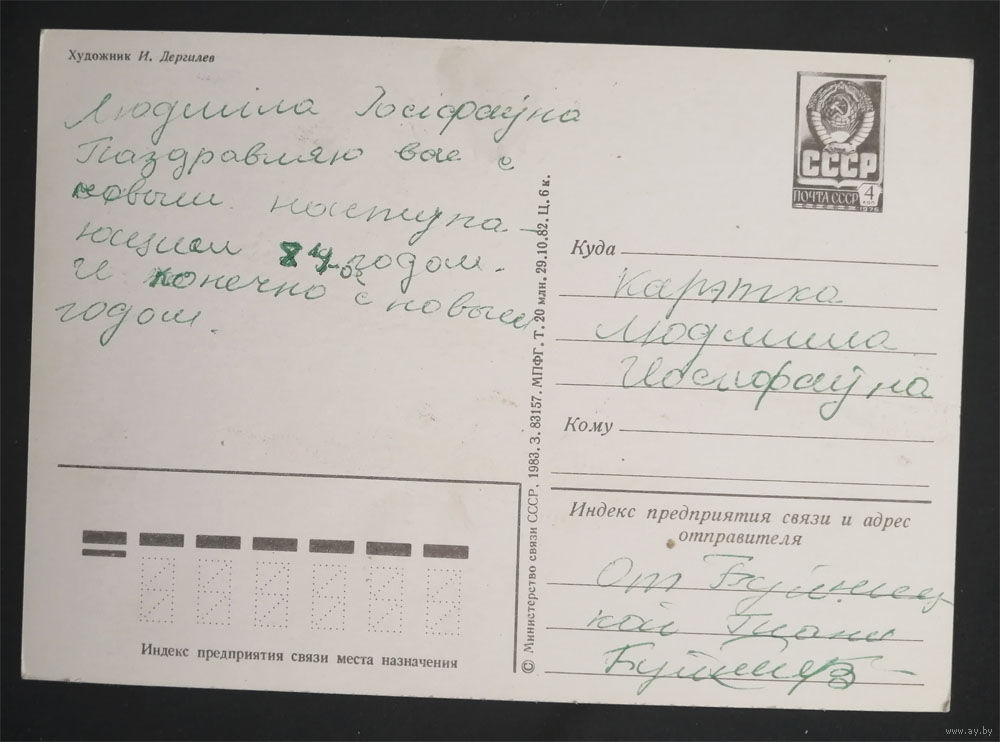 Художник И. Дергилев
Людміла Іосіфаўна
Паздравляю вас с
новым наступа-
ющим 84-ым годом.
И конечно с новым
годом.
СССР
ПОЧТА СССР
4
КОП
1976
Куда
Карэтка
Людмила
Иосифаўна
Кому
Индекс предприятия связи и адрес
отправителя
От Буйниц
кой
Индекс предприятия связи места назначения
© Министерство связи СССР, 1983. З. 83157. МПФГ. Т. 20 млн. 29.10.82. Ц. 6 к.
www.ay.by